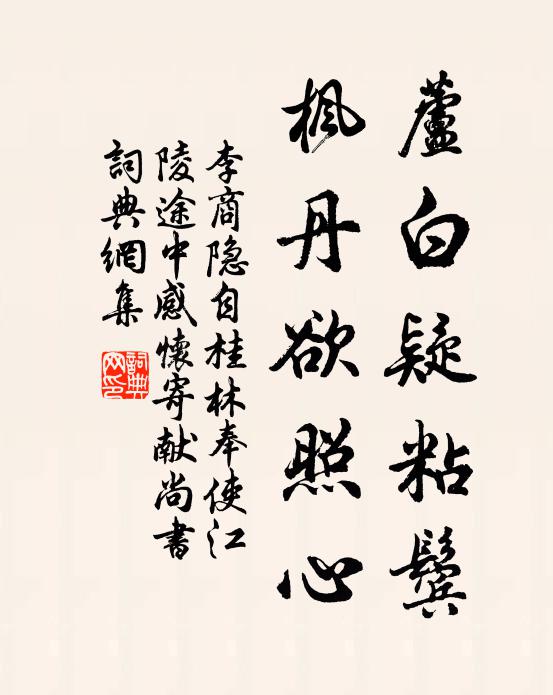 蘆白疑粘鬢
楓丹欲照心
李商隐自桂林奉使江
陵途中感懷寄献尚書
詞典網集
詞典网印